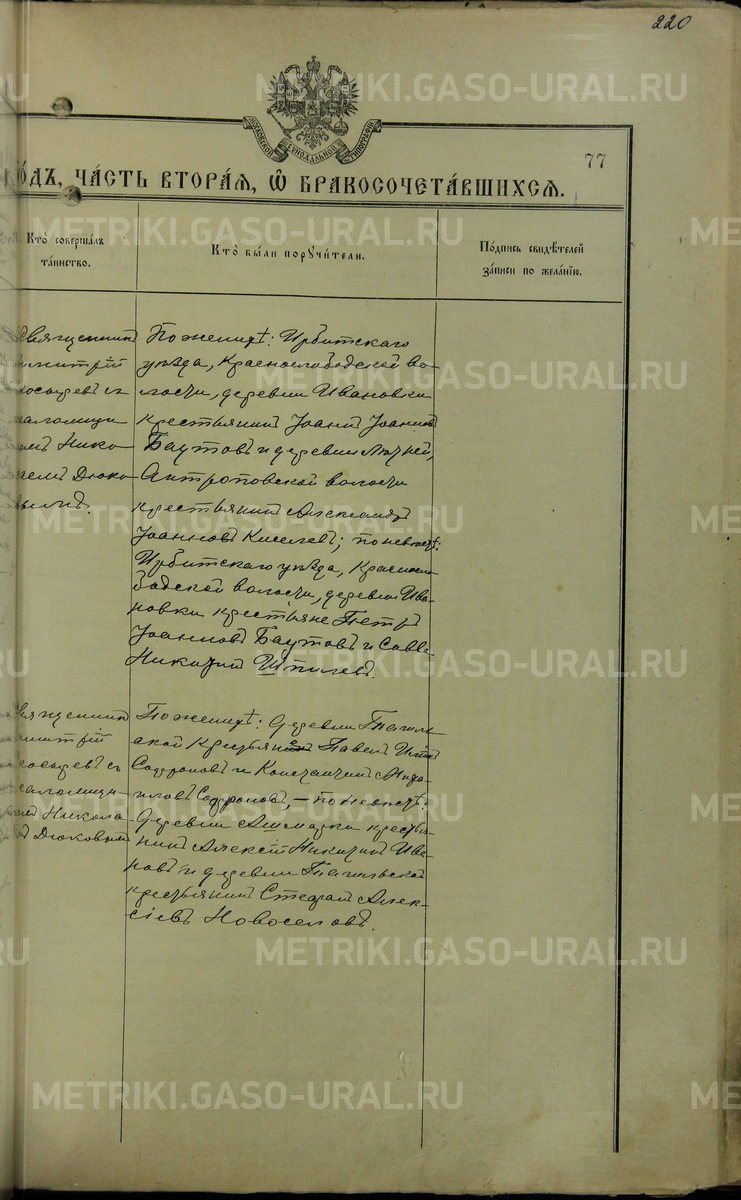 220
МОСКОВСКОЙ СѴНОДАЛЬНОЙ ТИПОГРАФІИ
77
ОДЪ, ЧАСТЬ ВТОРАЯ, Ѡ БРАКОСОЧЕТАВШИХСЯ.
Кто совершалъ
таинство.
Кто были поручители.
Подпись свидѣтелей
записи по желанію.
священникъ
митрій
косаревъ съ
саломщи
омъ Нико
аемъ Дюко
вымъ.
По женихѣ: Ирбитскаго
уѣзда, Краснослободской во-
лости, деревни Ивановки
крестьянинъ Іоаннъ Іоанновъ
Баутовъ и деревни
Антроповской волости
крестьянинъ Александръ
Іоанновъ Киселевъ; по невѣстѣ:
Ирбитскаго уѣзда, Краснosло
бодской волости, деревни Ива-
новки крестьяне Петръ
Іоанновъ Баутовъ и Савва
Никитинъ Шпилевъ.
священникъ
митрій
косаревъ съ
саломщи-
мъ Никола
мъ Дюковымъ
По женихѣ: деревни Тагиль-
ской крестьяне Павелъ
Софроновъ и Константинъ Миха-
иловъ Софроновъ, – по невѣстѣ:
деревни Ашмарки крестья-
нинъ Алексій Никитинъ Ива-
новъ и деревни Тагильской
крестьянинъ Стефанъ Алек-
сіевъ Новоселовъ.
METRIKI.GASO-URAL.RU